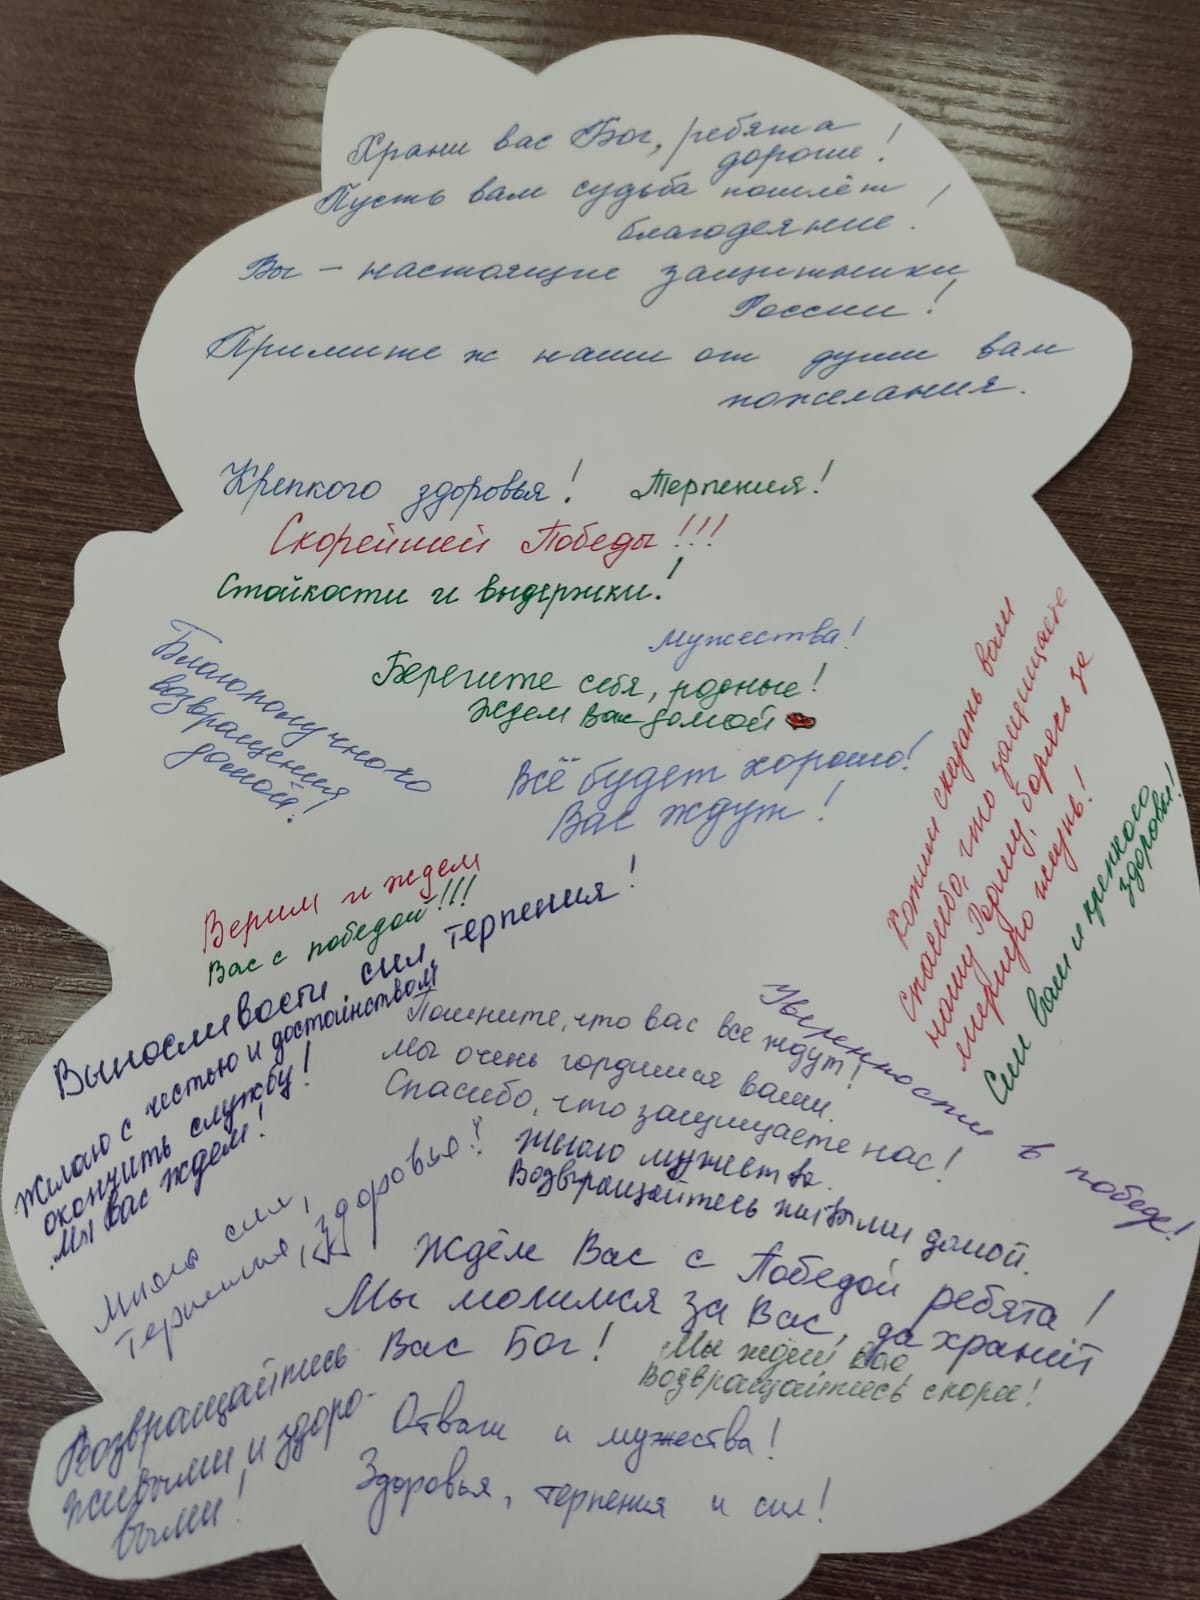 Храни вас Бог, ребята
дорогие!
Пусть вам судьба пошлёт
благодеяние!
Вы – настоящие защитники
России!
Примите ж наши от души вам
пожелания.
Крепкого здоровья!
Терпения!
Скорейшей Победы!!!
Стойкости и выдержки!
Мужества!
Благополучного
возвращения
домой!
Берегите себя, родные!
Ждем Вас домой
Всё будет хорошо!
Вас ждут!
Хотим сказать вам
спасибо, что защищаете
нашу Родину, борясь за
мирную жизнь!
Сил вам и крепкого
здоровья!
Верим и ждем
Вас с победой!!!
Выносливости, сил, терпения!
Желаю с честью и достоинством
окончить службу!
Мы вас ждем!
Уверенности в победе!
Помните, что вас все ждут!
Мы очень гордимся вами.
Спасибо, что защищаете нас!
Много сил,
терпения, здоровья!
Желаю мужества.
Возвращайтесь живыми домой.
Ждём Вас с Победой ребята!
Мы молимся за Вас, да хранит
Вас Бог!
Мы ждём вас
Возвращайтесь скорее!
Возвращайтесь
живыми и здоро-
выми!
Отваги и мужества!
Здоровья, терпения и сил!